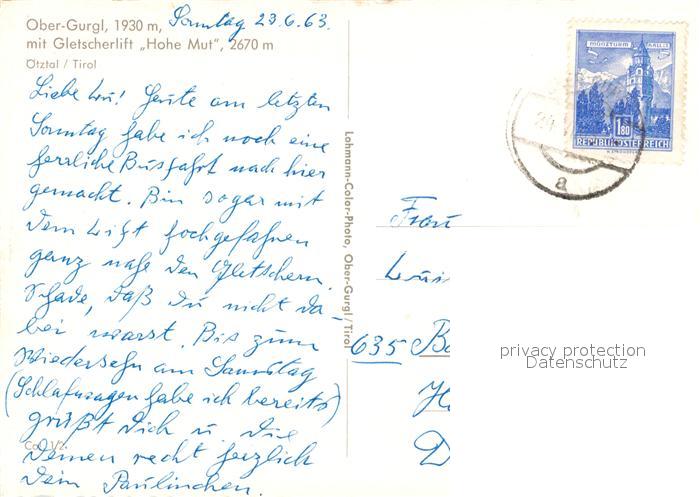 Ober-Gurgl, 1930 m,
mit Gletscherlift „Hohe Mut“, 2670 m
Ötztal / Tirol
Sonntag 23.6.63.
Liebe Lu! Heute am letzten
Sonntag habe ich noch eine
herrliche Busfahrt nach hier
gemacht. Bin sogar mit
dem Lift hochgefahren
ganz nahe den Gletschern.
Schade, daß Du nicht da-
bei warst. Bis zum
Wiedersehn am Samstag
(Schlafwagen habe ich bereits)
grüßt Dich u. die
Deinen recht herzlich
Dein Paulinchen.
Lohmann-Color-Photo, Ober-Gurgl/Tirol
MÜNZTURM HALL I/T
1.80
REPUBLIK ÖSTERREICH
a
Frau
Luis
635 Ba
H
D
privacy protection
Datenschutz